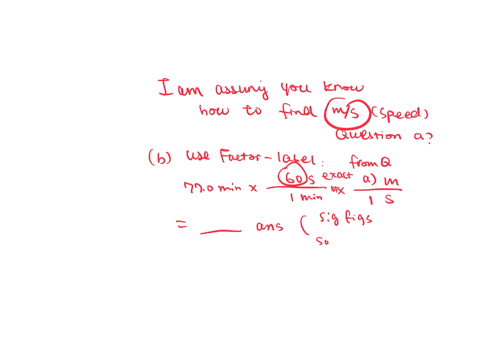 I am assuming you know
how to find m/s (speed)
Question a?
(b) use Factor-label: from Q
77.0 min × 60 s / 1 min exact # × a) m / 1 s
= ___ ans ( sig figs
so